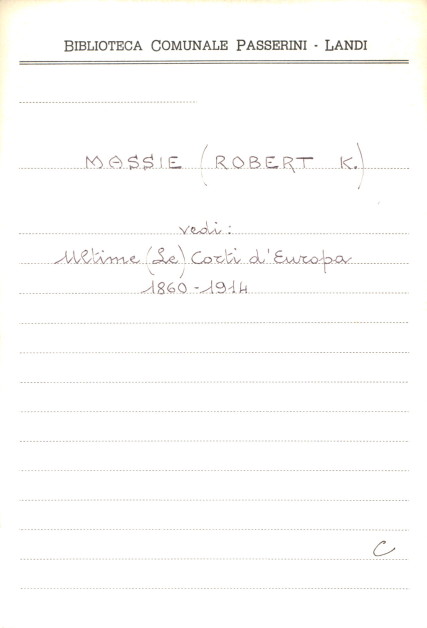 BIBLIOTECA COMUNALE PASSERINI - LANDI
MASSIE (ROBERT K.)
vedi:
Ultime (Le) Corti d'Europa
1860-1914
C